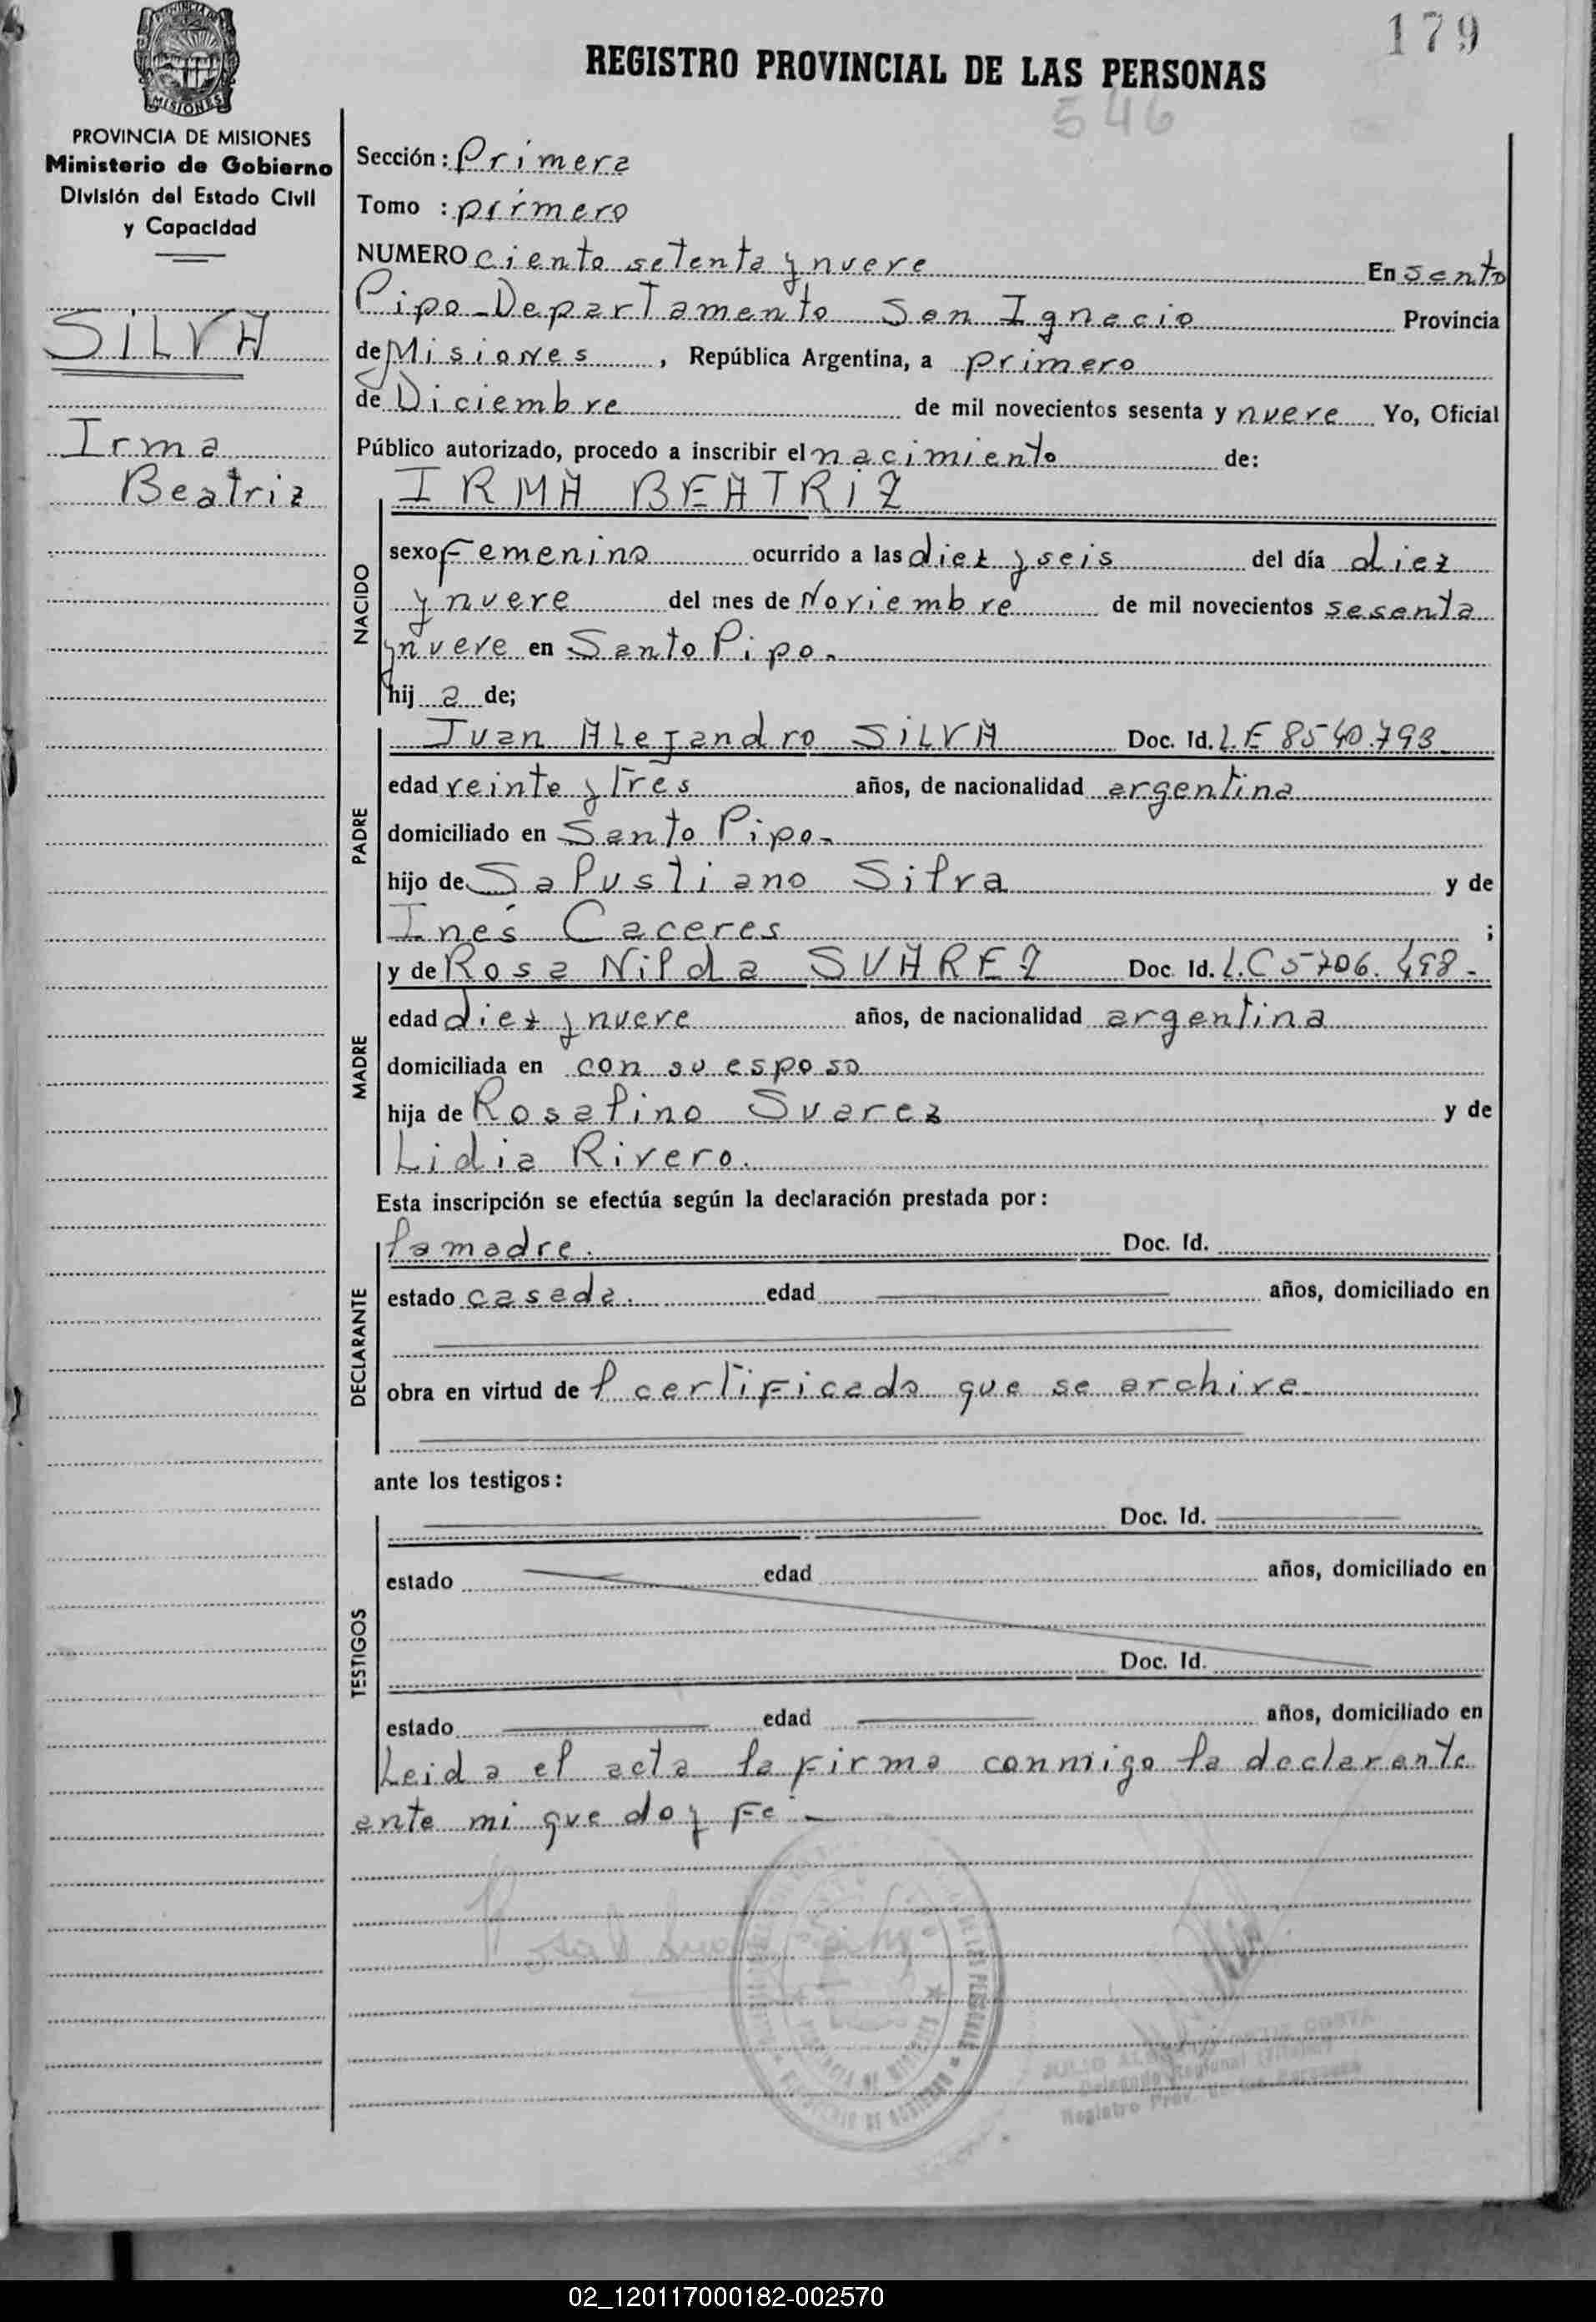 179
REGISTRO PROVINCIAL DE LAS PERSONAS
546
MISIONES
PROVINCIA DE MISIONES
Ministerio de Gobierno
División del Estado Civil
y Capacidad
SILVA
Irma
Beatriz
Sección: Primera
Tomo : primero
NUMERO ciento setenta y nueve En Santo
Pipo-Departamento San Ignacio Provincia
de Misiones, República Argentina, a primero
de Diciembre de mil novecientos sesenta y nueve Yo, Oficial
Público autorizado, procedo a inscribir el nacimiento de:
NACIDO
IRMA BEATRIZ
sexo Femenino ocurrido a las diez y seis del día diez
y nueve del mes de Noviembre de mil novecientos sesenta
y nueve en Santo Pipo.
hij a de;
PADRE
Juan Alejandro SILVA Doc. Id. L.E 8540.793
edad veinte y Tres años, de nacionalidad argentina
domiciliado en Santo Pipo-
hijo de Salustiano Silva y de
Inés Caceres ;
MADRE
y de Rosa Nilda SUAREZ Doc. Id. L.C 5706.498-
edad diez y nueve años, de nacionalidad argentina
domiciliada en con su esposo
hija de Rosalino Suarez y de
Lidia Rivero.
Esta inscripción se efectúa según la declaración prestada por:
DECLARANTE
la madre. Doc. Id.
estado casada. edad años, domiciliado en
obra en virtud de l certificado que se archiva
ante los testigos:
TESTIGOS
Doc. Id.
estado edad años, domiciliado en
Doc. Id.
estado edad años, domiciliado en
Leida el acta la firma conmigo la declarante
ante mi que doy Fe-
DE LAS PERSONAS
PROVINCIA DE MISIONES
MINISTERIO DE GOBIERNO
JULIO
Delegado Regional (Titular)
Registro Prov. de las Personas
02_120117000182-002570